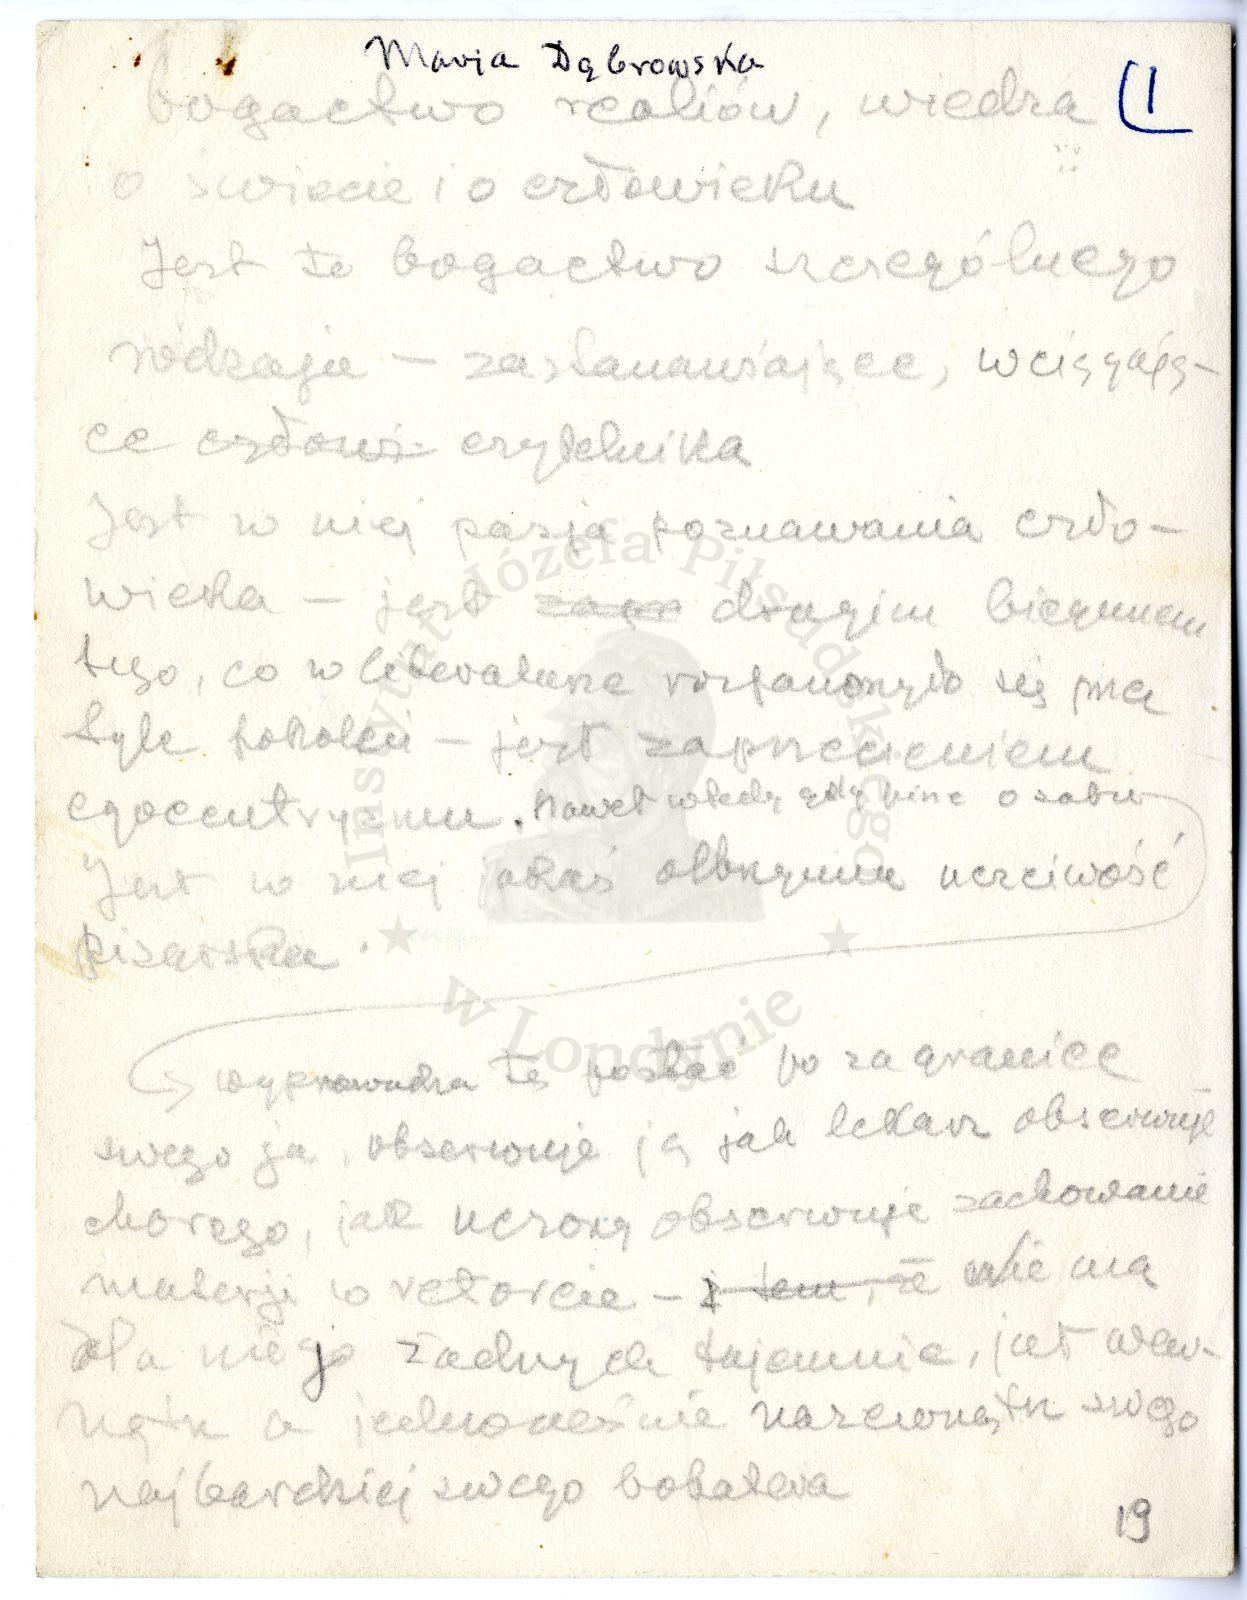 Maria Dąbrowska
1
bogactwo realiów, wiedza
o świecie i o człowieku
Jest to bogactwo szczególnego
rodzaju – zastanawiające, wciągają-
ce człowi czytelnika
Jest w niej pasja poznawania czło-
wieka – jest drugim biegunem
tego, co w literaturze rozpanoszyło się na
tyle pokoleń – jest zaprzeczeniem
egocentryzmu. Nawet wtedy gdy pisze o sobie
Jest w niej jakaś olbrzymia uczciwość
pisarska.
wyprowadza tę postać poza granice
swego ja, obserwuje ją jak lekarz obserwuje
chorego, jak uczony obserwuje zachowanie
materji w retorcie – i tem, że nie ma
dla niego żadnych tajemnic, jest wew-
nątrz a jednocześnie nazewnątrz swego
najbardziej swego bohatera
19
Instytut Józefa Piłsudskiego
w Londynie